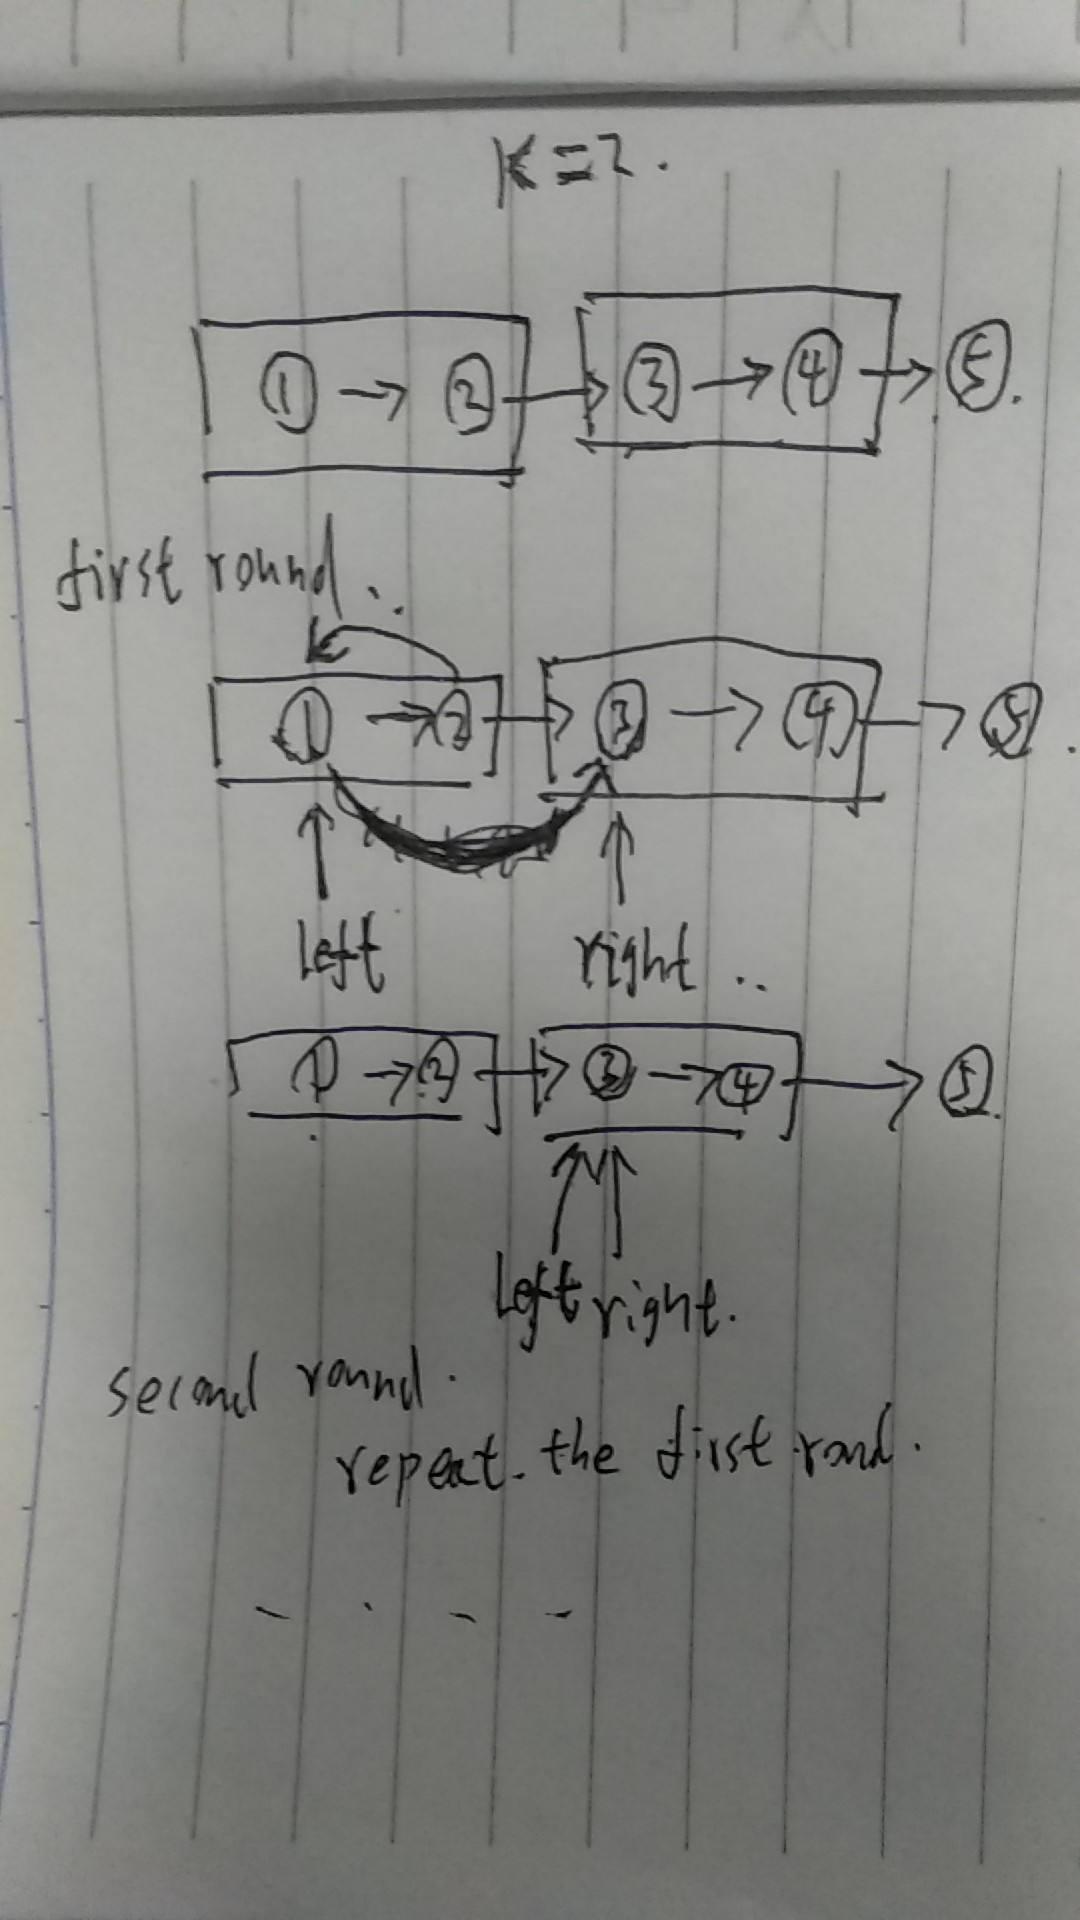 K=2.
① → ② → ③ → ④ → ⑤.
first round..
① → ② → ③ → ④ → ⑤.
left right..
① → ② → ③ → ④ → ⑤.
left right.
second round.
repeat the first rond.